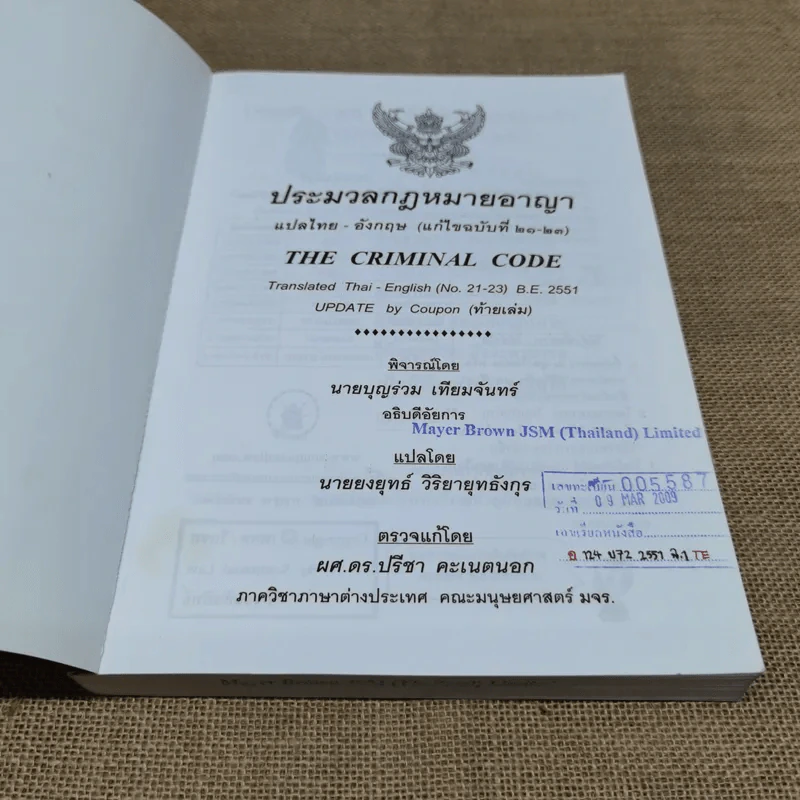 ประมวลกฎหมายอาญา
แปลไทย - อังกฤษ (แก้ไขฉบับที่ ๒๑-๒๓)
THE CRIMINAL CODE
Translated Thai - English (No. 21-23) B.E. 2551
UPDATE by Coupon (ท้ายเล่ม)
พิจารณ์โดย
นายบุญร่วม เทียมจันทร์
อธิบดีอัยการ
Mayer Brown JSM (Thailand) Limited
แปลโดย
นายยงยุทธ์ วิริยายุทธังกุร
เลขทะเบียน 005587
วันที่ 09 MAR 2009
เลขเรียกหนังสือ
124 บ72 2551 ฉ.1 TE
ตรวจแก้โดย
ผศ.ดร.ปรีชา คะเนตนอก
ภาควิชาภาษาต่างประเทศ คณะมนุษยศาสตร์ มจร.